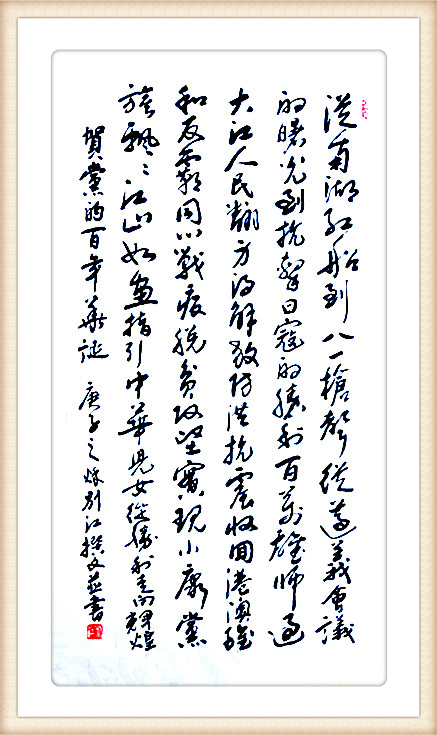 從南湖红船到八一槍聲從遵義會議
的曙光到抗擊日寇的勝利百萬雄師過
大江人民翻身得解放防洪抗震收回港澳維
和反霸同心戰疫脫貧攻堅實現小康黨
旗飄〻江山如畫指引中華兒女從勝利走向輝煌
賀黨的百年華誕 庚子之秋別江撰文並書